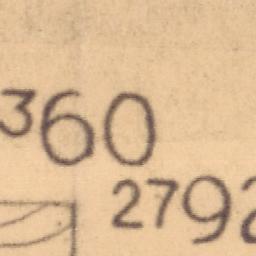 360
2792